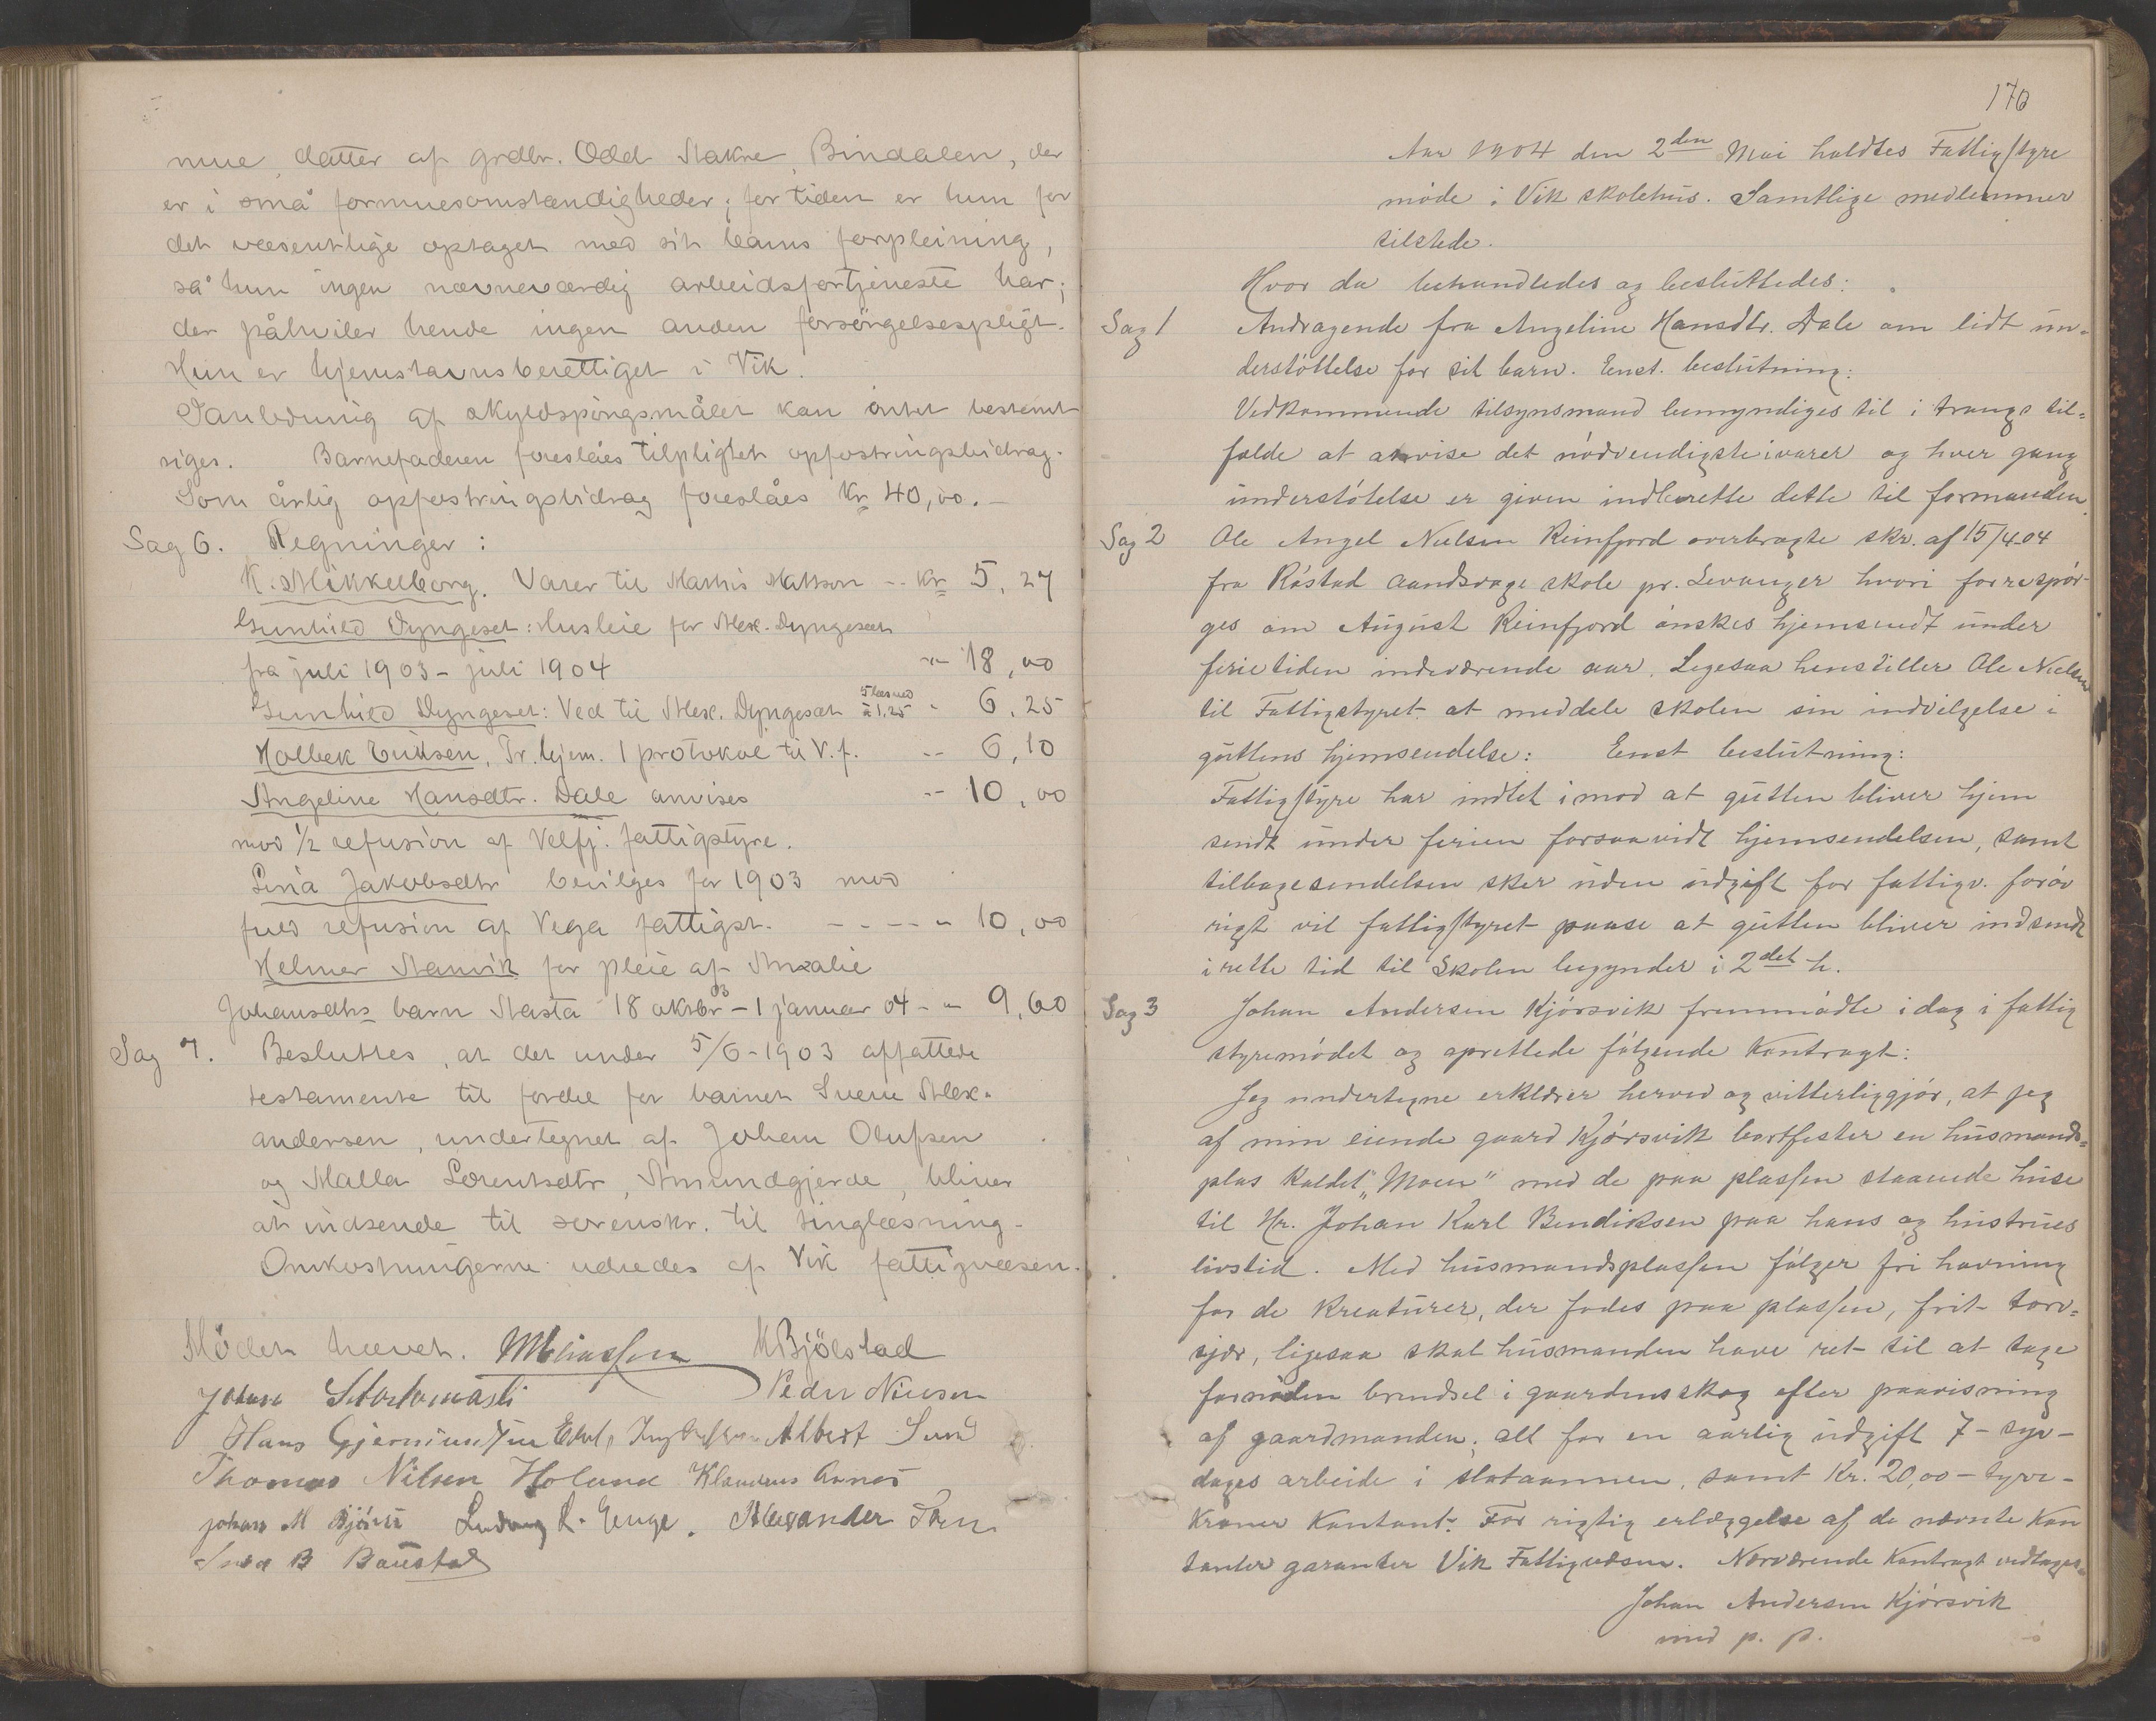 mue, datter af grdbr. Odd Stakre, Bindalen, der
er i små formuesomstændigheder; for tiden er hun for
det væsentlige optaget med sit barns forpleining,
så hun ingen nævneværdig arbeidsfortjeneste har;
der påhviler hende ingen anden forsørgelsespligt.
Hun er hjemstavnsberettiget i Vik.
I anledning af skyldspörgsmålet kan intet bestemt
siges. Barnefaderen foreslåes tilpligtet opfostringsbidrag.
Som årlig opfostringsbidrag foreslåes Kr 40,00. —
Sag 6. Regninger:
K. Mikkelborg. Varer til Mathis Mattson -- Kr 5,27
Gunhild Dyngeset: Husleie for Alex. Dyngeset
fra juli 1903 - juli 1904 -"- 18,00
Gunhild Dyngeset: Ved til Alex. Dyngeset 5 læs ved à 1,25 - 6,25
Holbek Eriksen, Tr.hjem. 1 protokol til V.f. -- 6,10
Angeline Hansdtr. Dale anvises -- 10,00
mod 1/2 refusion af Velfj. fattigstyre.
Lina Jakobsdtr bevilges for 1903 mod
fuld refusion af Vega fattigst. - - - - " 10,00
Helmer Stamvik for pleie af Amalie
Johansdtrs barn Nasta 18 oktbr 03 - 1 januar 04 - " 9,60
Sag 7. Besluttes, at det under 5/6-1903 affattede
testamente til fordel for barnet Sverre Alex-
andersen, undertegnet af Johan Olufsen
og Malla Lorentsdtr, Amundgjerde, bliver
at indsende til sorenskr. til tinglæsning.
Omkostningerne udredes af Vik fattigvæsen.
Mödet hævet. M Eliassen M Bjölstad
Johan Peder Nielsen
Hans Albert Sund
Thomas Nilsen Holand Klaudius Aarnes
Johan M Ludvig R. Enge. Alexander
B Baustad
170
Aar 1904 den 2den Mai holdtes Fattigstyre
möde i Vik skolehus. Samtlige medlemmer
tilstede.
Hvor da behandledes og besluttedes:
Sag 1 Andragende fra Angeline Hansdtr. Dale om lidt un-
derstöttelse for sit barn. Enst. beslutning:
Vedkommende tilsynsmand bemyndiges til i trangs til-
fælde at anvise det nödvendigste i varer og hver gang
understötelse er given indberette dette til formanden.
Sag 2 Ole Angel Nielsen Reinfjord overbragte skr. af 15/4-04
fra Röstad aandsvage skole pr. Levanger hvori forrespör-
ges om August Reinfjord önskes hjemsendt under
ferietiden indeværende aar. Legesaa henstiller Ole Nielsen
til Fattigstyret at meddele skolen sin indvilgelse i
guttens hjemsendelse: Enst beslutning:
Fattigstyre har indtet imod at gutten bliver hjem
sendt under ferien forsaavidt hjemsendelsen, samt
tilbagesendelsen sker uden udgift for fattigv. foröv
rigt vil fattigstyret paase at gutten bliver indsendt
i rette tid til Skolen begynder i 2det h.
Sag 3 Johan Andersen Kjörsvik fremmödte i dag i fattig
styremödet og oprettede fölgende Kontragt:
Jeg undertegne erklærer herved og vitterliggjör, at jeg
af min eiende gaard Kjörsvik bortfester en husmands-
plas kaldet "Moen" med de paa plassen staaende huse
til Hr. Johan Karl Bendiksen paa hans og hustrues
livstid. Med husmandsplassen fölger fri havning
for de kreaturer, der födes paa plassen, frit torv-
sjær, ligesaa skal husmanden have ret til at tage
fornöden brendsel i gaardens skog efter paavisning
af gaardmanden; alt for en aarlig udgift 7 - syv -
dages arbeide i slotaannen, samt Kr. 20,00 - tyve -
Kroner Kontant. For rigtig erlæggelse af de nævnte Kon
tanter garanter Vik Fattigvæsen. Nærværende Kontragt vedtages
Johan Andersen Kjörsvik
med p. p.